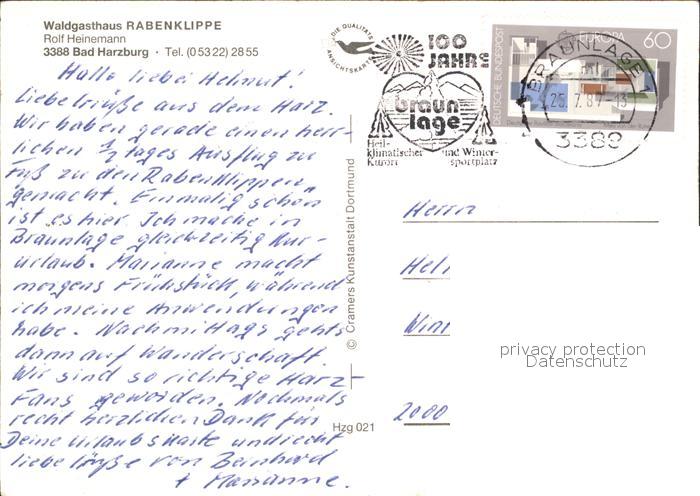 Waldgasthaus RABENKLIPPE
Rolf Heinemann
3388 Bad Harzburg · Tel. (05322) 2855
Hallo lieber Helmut!
Liebe Grüße aus dem Harz.
Wir haben gerade einen herr-
lichen ½ tages Ausflug zu
Fuß zu den Rabenklippen
gemacht. Einmalig schön
ist es hier. Ich mache in
Braunlage gleichzeitig Kur-
urlaub. Marianne macht
morgens Frühstück, während
ich meine Anwendungen
habe. Nachmittags gehts
dann auf Wanderschaft.
Wir sind so richtige Harz-
Fans geworden. Nochmals
recht herzlichen Dank für
Deine Urlaubskarte und recht
liebe Grüße von Bernhard
+ Marianne.
© Cramers Kunstanstalt Dortmund
Hzg 021
DIE QUALITÄTS
ANSICHTSKARTE
100
JAHRE
braun
lage
Heil-
klimatischer und Winter-
Kurort sportplatz
DEUTSCHE BUNDESPOST
EUROPA
60
BRAUNLAGE 1
25. 7. 87 - 13
3389
Herrn
Hel
Win
2000
privacy protection
Datenschutz